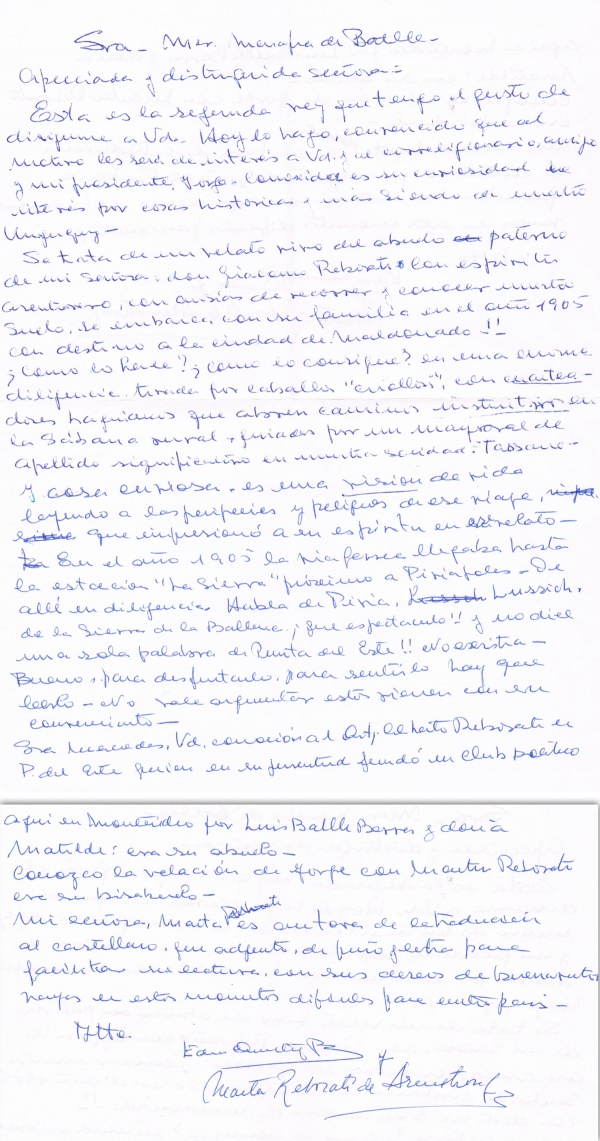 Sra - Mer. Menafra de Batlle -
Apreciada y distinguida señora:-
Esta es la segunda vez que tengo el gusto de
dirigirme a Vd. Hoy lo hago, convencido que el
motivo les será de interés a Vd. y al correligionario, amigo
y mi presidente, Jorge. Conocida es su curiosidad e
interés por cosas históricas y más siendo de nuestro
Uruguay -
Se trata de un relato vivo del abuelo paterno
de mi señora: don Giacomo Reborati. Con espíritu
aventurero, con ansias de recorrer y conocer nuestro
suelo, se embarca con su familia en el año 1905
con destino a la ciudad de Maldonado!!
¿Como lo hace? ¿como lo consigue? en una enorme
diligencia tirada por caballos "criollos", con cuartea-
dores baquianos que abren caminos en
la rural, guiados por un mayoral de
apellido significativo en nuestra sociedad: Tassano -
Y cosa curiosa - es una vision de vida
leyendo a las peripecias y peligros de ese viaje,
que impresionó a en espíritu en relato -
En el año 1905 la via ferrea llegaba hasta
la estación "La Sierra" próximo a Piriapolis - De
allí en diligencia. Habla de Piria, Lussich,
de la Sierra de la Ballena ¡que espectaculo!! y no dice
una sola palabra de Punta del Este!! No existia -
Bueno, para disfrutarlo, para sentirlo hay que
leerlo - No vale argumentar
conocimiento -
Sra Mercedes, Vd. conoció al Arq. Reborati en
P. del Este quien en su juventud fundó un club político
aqui en Montevideo por Luis Batlle Berres y doña
Matilde: era su abuelo -
Conozco la relación de Jorge con Martin Reborati
era su bisabuelo -
Mi señora, Marta Reborati es autora de la traducción
al castellano, que adjunto, de puño y letra para
facilitar su lectura, con sus deseos de buenaventu
en estos momentos dificiles para nuestro pais -
Atte.
y
Marta Reborati de Armstrong